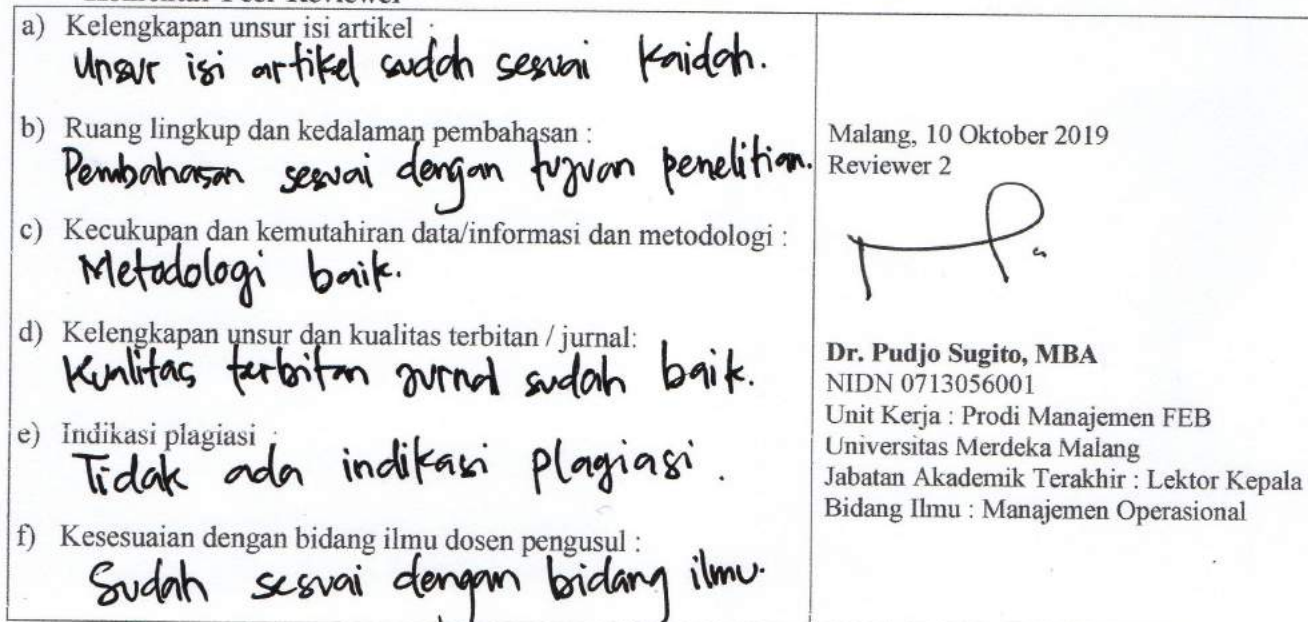 a) Kelengkapan unsur isi artikel :
Unsur isi artikel sudah sesuai kaidah.
b) Ruang lingkup dan kedalaman pembahasan :
Pembahasan sesuai dengan tujuan penelitian.
c) Kecukupan dan kemutahiran data/informasi dan metodologi :
Metodologi baik.
d) Kelengkapan unsur dan kualitas terbitan / jurnal:
Kualitas terbitan jurnal sudah baik.
e) Indikasi plagiasi :
Tidak ada indikasi plagiasi.
f) Kesesuaian dengan bidang ilmu dosen pengusul :
Sudah sesuai dengan bidang ilmu.
Malang, 10 Oktober 2019
Reviewer 2
Dr. Pudjo Sugito, MBA
NIDN 0713056001
Unit Kerja : Prodi Manajemen FEB
Universitas Merdeka Malang
Jabatan Akademik Terakhir : Lektor Kepala
Bidang Ilmu : Manajemen Operasional